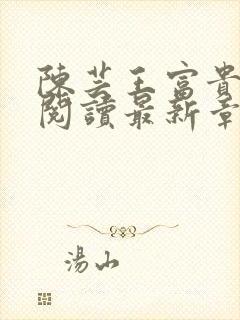 陳芸王富貴
閱讀最新章
湯山